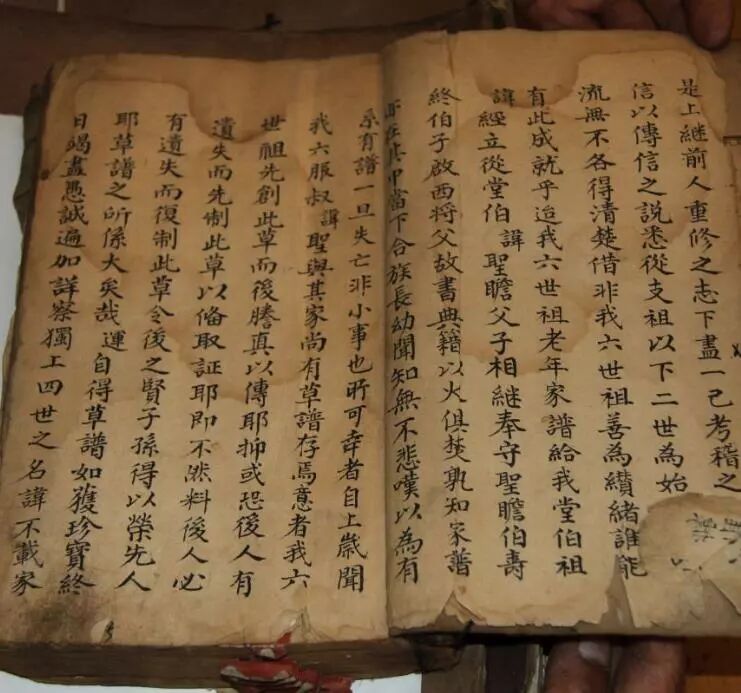 是上繼前人重修之志下盡一己考稽之
信以傳信之說悉從支祖以下二世為始
流無不各得清楚借非我六世祖善為纘緒誰能
有此成就乎迨我六世祖老年家譜給我堂伯祖
諱經立從堂伯諱聖瞻父子相繼奉守聖瞻伯壽
終伯子啟西將父故書典籍以火俱焚孰知家譜
亦在其中當下合族長幼聞知無不悲嘆以為有
系有譜一旦失亡非小事也所可幸者自上歲聞
我六服叔諱聖與其家尚有草譜存焉意者我六
世祖先創此草而後謄真以傳耶抑或恐後人有
遺失而先制此草以俻取証耶即不然料後人必
有遺失而復制此草令後之賢子孫得以榮先人
耶草譜之所係大矣哉運自得草譜如獲珍寶終
日竭盡愚誠遍加詳察獨工四世之名諱不載家